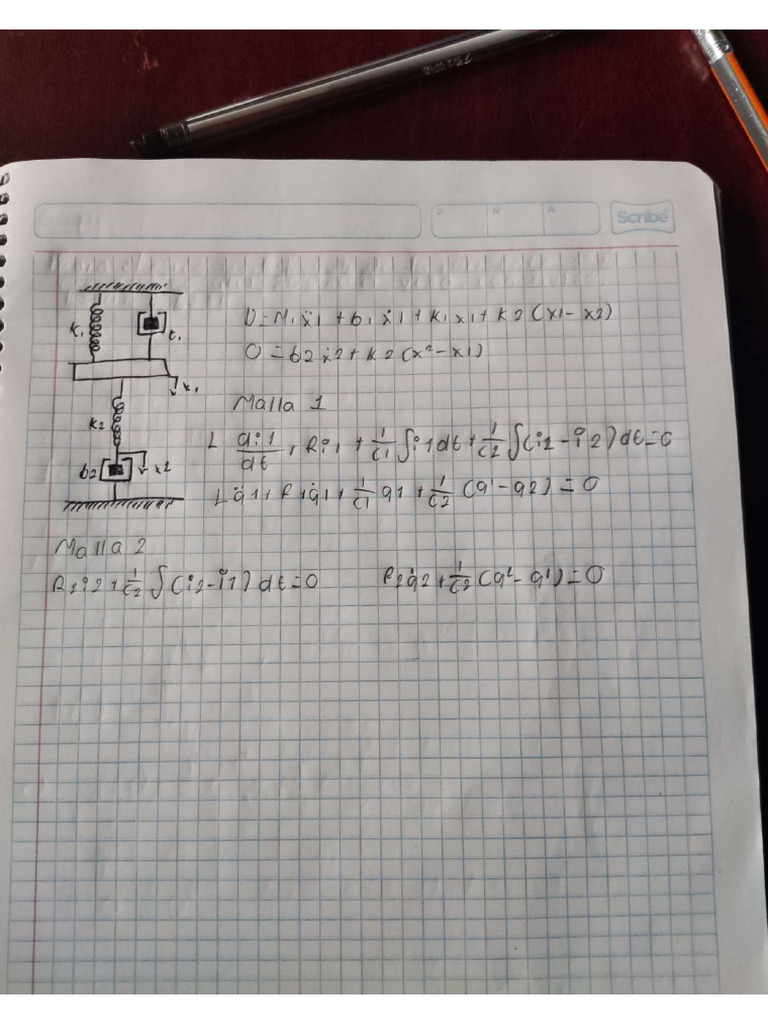 Scribe
D M A
K1
t1
x1
K2
b2
x2
0=M1ẍ1 + b1ẋ1 + K1x1 + K2(x1-x2)
0=b2ẋ2+K2(x2-x1)
Malla 1
L di1/dt + Ri1 + 1/C1 ∫i1dt + 1/C2 ∫(i1-i2)dt=0
Lq̈1+R1q̇1+1/C1 q1 + 1/C2 (q1-q2)=0
Malla 2
R2i2+1/C2 ∫(i2-i1)dt=0
R2q̇2+1/C2(q2-q1)=0